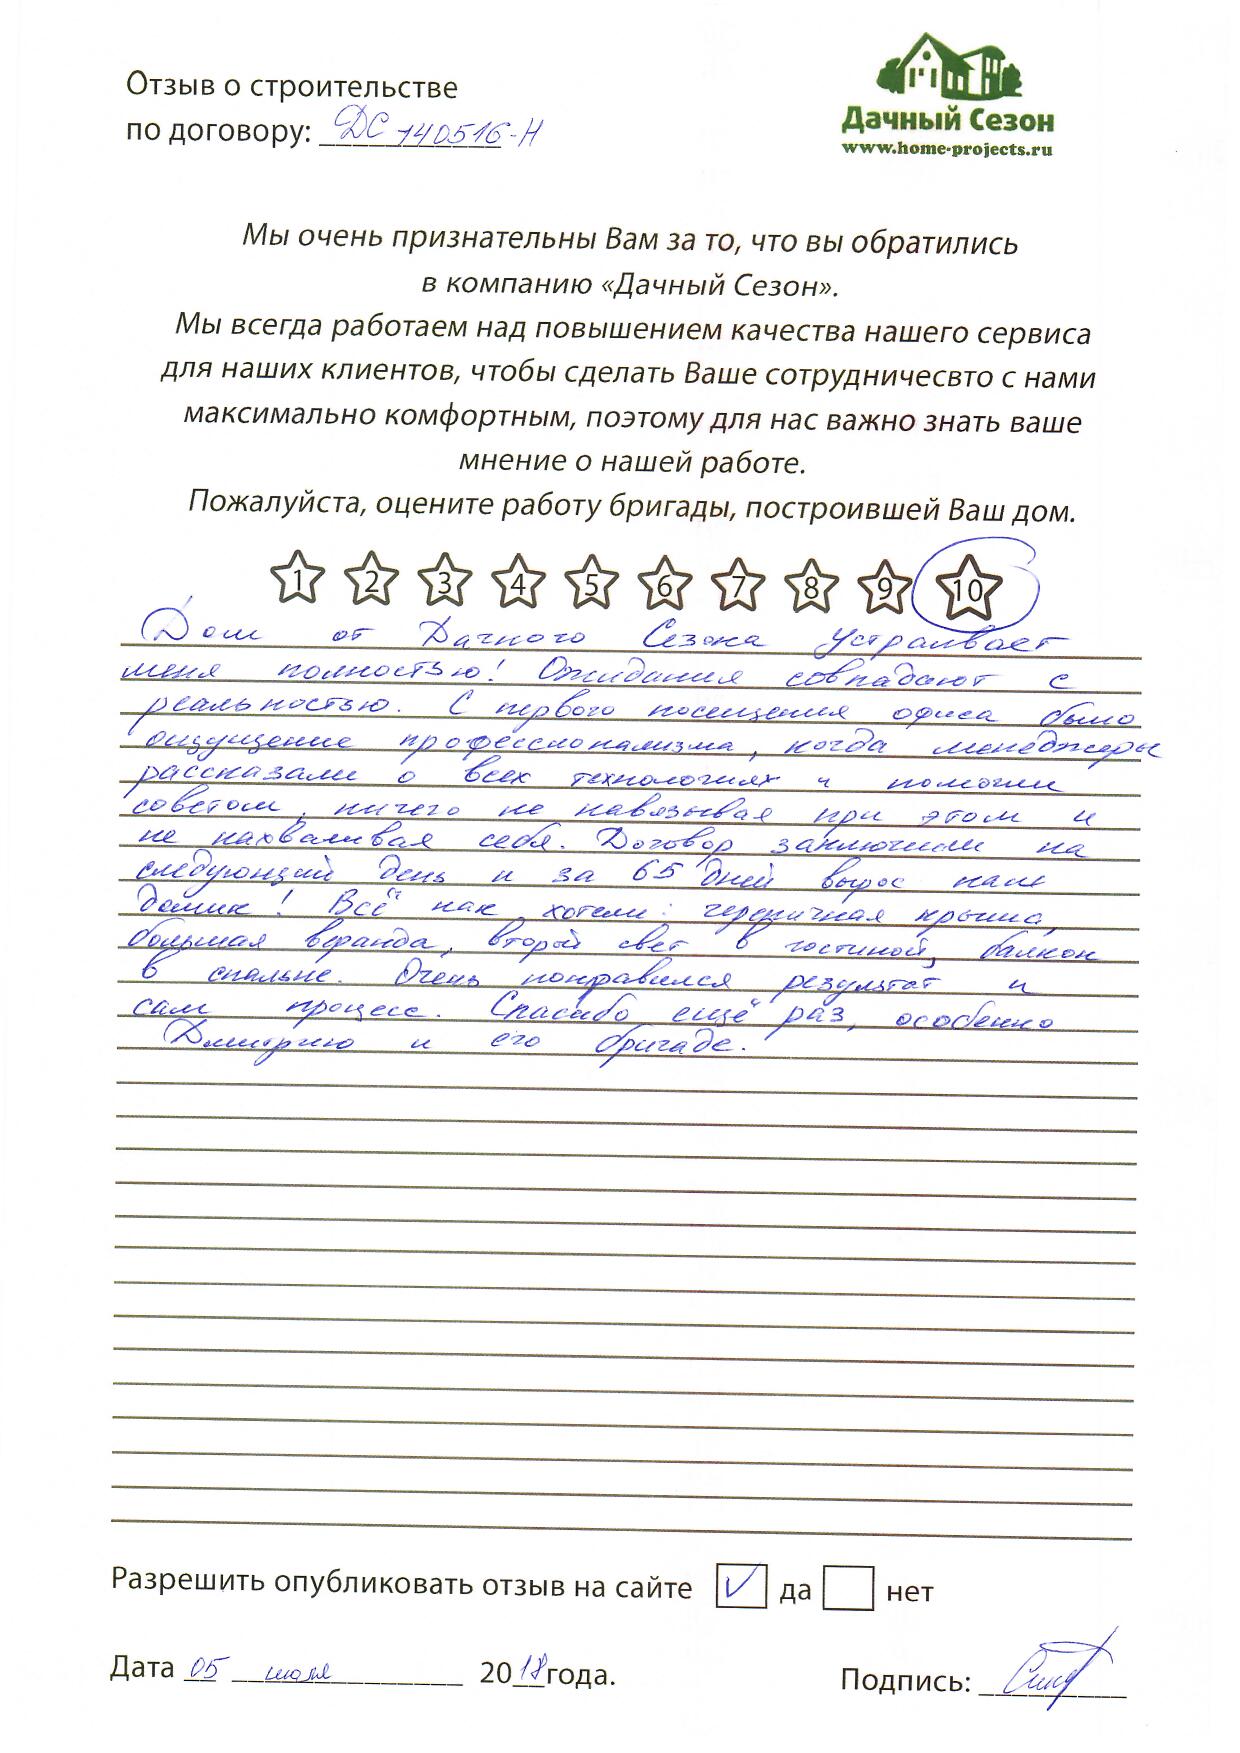 Отзыв о строительстве
по договору: ДС 140516-Н
Дачный Сезон
www.home-projects.ru
Мы очень признательны Вам за то, что вы обратились
в компанию «Дачный Сезон».
Мы всегда работаем над повышением качества нашего сервиса
для наших клиентов, чтобы сделать Ваше сотрудничесвто с нами
максимально комфортным, поэтому для нас важно знать ваше
мнение о нашей работе.
Пожалуйста, оцените работу бригады, построившей Ваш дом.
1 2 3 4 5 6 7 8 9 10
Дом от Дачного Сезона устраивает
меня полностью! Ожидания совпадают с
реальностью. С первого посещения офиса было
ощущение профессионализма, когда менеджеры
рассказали о всех технологиях и помогли
советом, ничего не навязывая при этом и
не нахваливая себя. Договор заключили на
следующий день и за 65 дней вырос наш
домик! Всё как хотели: черепичная крыша,
большая веранда, второй свет в гостиной, балкон
в спальне. Очень понравился результат и
сам процесс. Спасибо ещё раз, особенно
Дмитрию и его бригаде.
Разрешить опубликовать отзыв на сайте да нет
Дата 05 июля 2018 года.
Подпись: